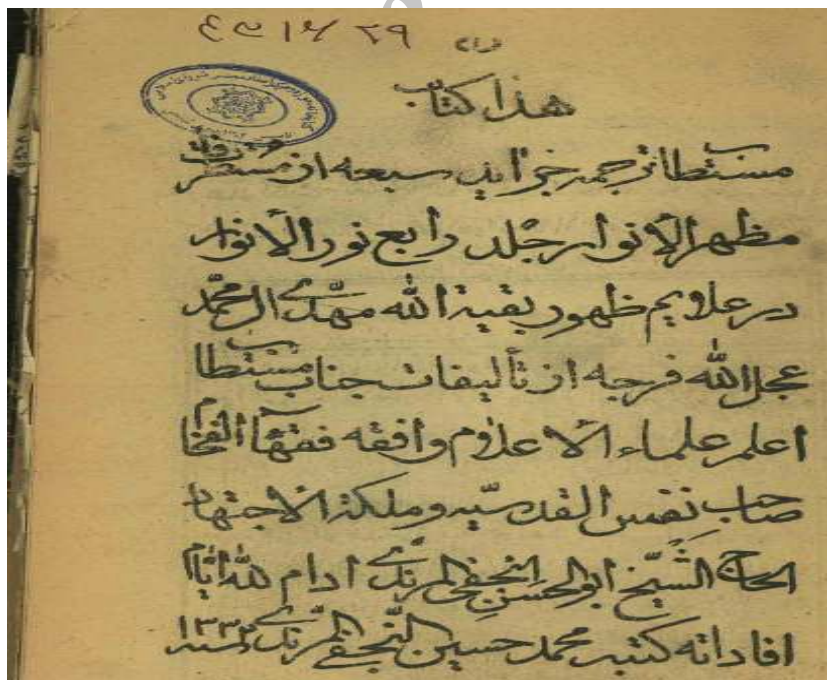 هذا كتاب
مستطاب ترجمه جزایر سبعه از مُستطرفات
مظهر الانوار جلد رابع نور الانوار
در علایم ظهور بقیة الله مهدی ال محمد
عجل الله فرجه از تألیفات جناب مستطاب
اعلم علماء الاعلام وافقه فقهآء الفخام
صاحب نفس القدسیه و ملكة الاجتهاد
الحاج الشیخ ابوالحسن النجفی المرندی ادام الله ایام
افاداته كتبه محمد حسین النجفی المرندی سنه ١٣٣٢